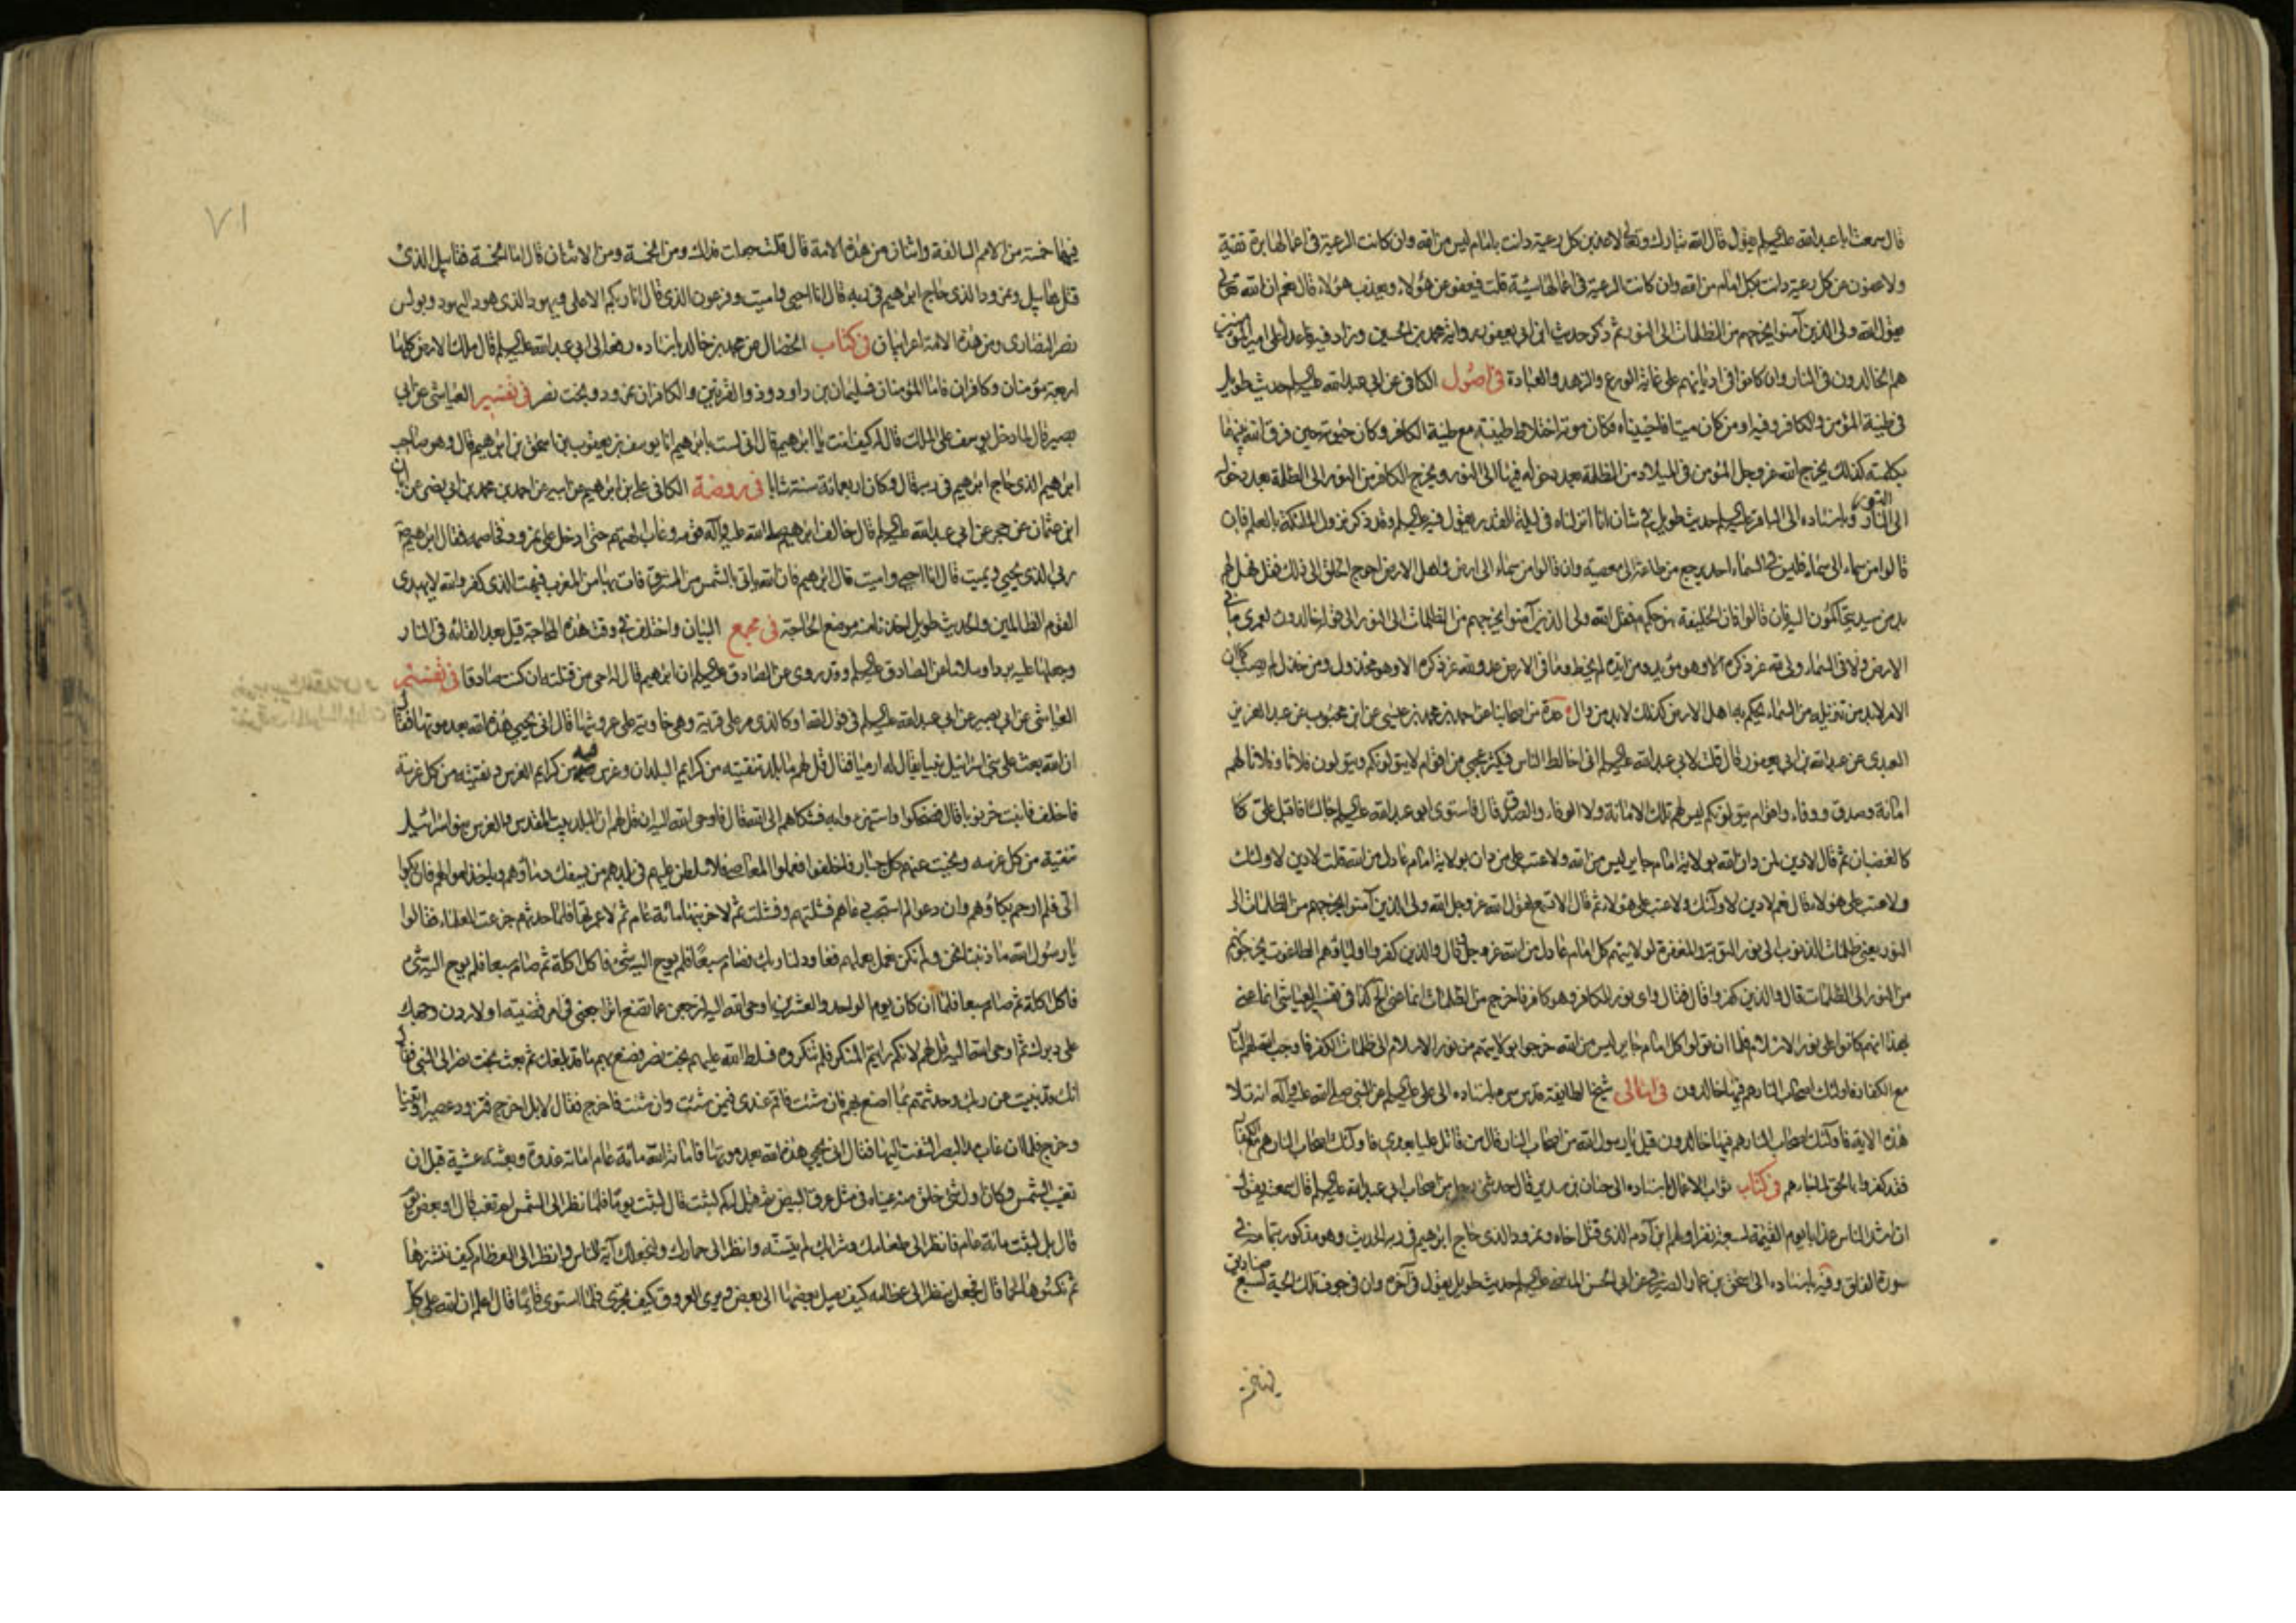 قال سمعت ابا عبدالله عليه السلام يقول قال الله تبارك وتعالى لاعذبن كل رعية دانت بامام ليس من الله وان كانت الرعية في اعمالها برة تقية
ولاعفون عن كل رعية دانت بكل امام من الله وان كانت الرعية في اعمالها سيئة قلت فيعفو عن هؤلاء ويعذب هؤلاء قال نعم ان الله تعالى
يقول الله ولي الذين آمنوا يخرجهم من الظلمات الى النور ثم ذكر حديث ابن ابي يعفور رواية محمد بن الحسين وزاد فيه فاعداء علي امير المؤمنين
هم الخالدون في النار وان كانوا في اديانهم على غاية الورع والزهد والعبادة في اصول الكافي عن ابي عبدالله عليه السلام حديث طويل
في طينة المؤمن والكافر وفيه اومن كان ميتا فاحييناه فكان موته اختلاط طينته مع طينة الكافر وكان حيوته حين فرق الله بينهما
بكلمته كذلك يخرج الله عز وجل المؤمن في الميلاد من الظلمة بعد دخوله فيها الى النور ويخرج الكافر من النور الى الظلمة بعد دخوله
الى النور وباسناده الى الباقر عليه السلام حديث طويل في شان انا انزلناه في ليلة القدر يقول فيه عليه السلام وقد ذكر نزول الملئكة بالعلم فان
قالوا من سماء الى سماء فليس في السماء احد يرجع من طاعة الى معصية وان قالوا من سماء الى ارض واهل الارض احوج الخلق الى ذلك فقل فهل لهم
بد من سيد يتحاكمون اليه فان قالوا فان الخليفة هو حكمهم فقل الله ولي الذين آمنوا يخرجهم من الظلمات الى النور الى قوله خالدون لعمري ما في
الارض ولا في السماء ولي لله عز ذكره الا وهو مؤيد ومن ايد لم يخط وما في الارض عدو لله عز ذكره الا وهو مخذول ومن خذل لم يصب كما ان
الامر لابد من تنزيله من السماء يحكم به اهل الارض كذلك لابد من وال عدة من اصحابنا عن احمد بن محمد بن عيسى عن ابن محبوب عن عبد العزيز
العبدي عن عبدالله بن ابي يعفور قال قلت لابي عبدالله عليه السلام اني اخالط الناس فيكثر عجبي من اقوام لا يتولونكم ويتولون فلانا وفلانا لهم
امانة وصدق ووفاء واقوام يتولونكم ليس لهم تلك الامانة ولا الوفاء والصدق قال فاستوى ابو عبدالله عليه السلام جالسا فاقبل علي كا
كالغضبان ثم قال لا دين لمن دان الله بولاية امام جاير ليس من الله ولا عتب على من دان بولاية امام عادل من الله قلت لا دين لاولئك
ولا عتب على هؤلاء قال نعم لا دين لاولئك ولا عتب على هؤلاء ثم قال الا تسمع لقول الله عز وجل الله ولي الذين آمنوا يخرجهم من الظلمات الى
النور يعني ظلمات الذنوب الى نور التوبة والمغفرة لولايتهم كل امام عادل من الله عز وجل قال والذين كفروا اولياؤهم الطاغوت يخرجونهم
من النور الى الظلمات قال والذين كفروا قال فقال واي نور للكافر وهو كافر فاخرج من الظلمات انما عنى
بهذا انهم كانوا على نور الاسلام فلما ان تولوا كل امام جاير ليس من الله خرجوا بولايتهم من نور الاسلام الى ظلمات الكفر فاوجب الله لهم النار
مع الكفار فاولئك اصحاب النار هم فيها خالدون في امالي شيخ الطايفة قدس سره باسناده الى علي عليه السلام عن النبي صلى الله عليه وآله انه تلا
هذه الاية فاولئك اصحاب النار هم فيها خالدون قيل يا رسول الله من اصحاب النار قال من قاتل عليا بعدي فاولئك اصحاب النار هم مع الكفار
فقد كفروا بالحق لما جاءهم في كتاب ثواب الاعمال باسناده الى حنان بن سدير قال حدثني رجل من اصحاب ابي عبدالله عليه السلام قال سمعته يقول
ان اشد الناس عذابا يوم القيمة لسبعة نفر اولهم ابن آدم الذي قتل اخاه ونمرود الذي حاج ابرهيم في ربه الحديث وهو مذكور بتمامه في
سورة الفلق وفيه باسناده الى اسحق بن عمار الصيرفي عن ابي الحسن الماضي عليه السلام حديث طويل يقول في آخره وان في جوف تلك الحية لسبع صناديق
٧١
فيها خمسة من الامم السالفة واثنان من هذه الامة قال قلت جعلت فداك ومن الخمسة ومن الاثنان قال اما الخمسة فقابيل الذي
قتل هابيل ونمرود الذي حاج ابرهيم في ربه قال انا احيي واميت وفرعون الذي قال انا ربكم الاعلى ويهودا الذي هود اليهود وبولس
نصر النصارى ومن هذه الامة اعرابيان في كتاب الخصال عن محمد بن خالد باسناده رفعه الى ابي عبدالله عليه السلام قال ملك الارض كلها
اربعة مؤمنان وكافران فاما المؤمنان فسليمان بن داود وذو القرنين والكافران نمرود وبخت نصر في تفسير العياشي عن ابي
بصير قال لما دخل يوسف على الملك قال له كيف انت يا ابرهيم قال اني لست بابرهيم انا يوسف بن يعقوب بن اسحق بن ابرهيم قال وهو صاحب
ابرهيم الذي حاج ابرهيم في ربه قال وكان اربعمائة سنة شابا في روضة الكافي علي بن ابرهيم عن ابيه عن احمد بن محمد بن ابي نصر عن ابان
ابن عثمان عن حجر عن ابي عبدالله عليه السلام قال خالف ابرهيم صلى الله عليه وآله قومه وعاب آلهتهم حتى ادخل على نمرود فخاصمه فقال ابرهيم
ربي الذي يحيي ويميت قال انا احيي واميت قال ابرهيم فان الله ياتي بالشمس من المشرق فات بها من المغرب فبهت الذي كفر والله لا يهدي
القوم الظالمين والحديث طويل اخذنا منه موضع الحاجة في مجمع البيان واختلف في وقت هذه المحاجة قيل بعد القائه في النار
وجعلها عليه بردا وسلاما عن الصادق عليه السلام وقد روى عن الصادق عليه السلام ان ابرهيم قال له احي من قتلته ان كنت صادقا في تفسير
العياشي عن ابي بصير عن ابي عبدالله عليه السلام في قول الله او كالذي مر على قرية وهي خاوية على عروشها قال انى يحيي هذه الله بعد موتها فقال
ان الله بعث على بني اسرائيل نبيا يقال له ارميا فقال قل لهم ما بلد تنقيته من كرايم البلدان وغرس فيه من كرايم الغرس ونقيته من كل غرسة
فاخلف فانبت خرنوبا قال فضحكوا واستهزءوا به فشكاهم الى الله قال فاوحى الله اليه ان قل لهم ان البلد بيت المقدس والغرس بنو اسرائيل
تنقيته من كل غرسه ونحيت عنهم كل جبار فاخلفوا فعملوا المعاصي فلاسلطن عليهم في بلدهم من يسفك دماؤهم وياخذ اموالهم فان بكوا
الي فلم ارحم بكاؤهم وان دعوا لم استجب دعاهم فشلتهم وفشلت ثم لاخربنها مائة عام ثم لاعمرنها فلما حدثهم جزعت العلماء فقالوا
يا رسول الله ما ذنبنا نحن ولم نكن نعمل بعملهم فعاود لنا ربك فصام سبعا فلم يوح اليه شيء فاكل اكلة ثم صام سبعا فلم يوح اليه شيء
فاكل اكلة ثم صام سبعا فلما ان كان يوم الواحد والعشرين اوحى الله اليه لترجعن عما تصنع اتراجعني في امر قضيته او لاردن وجهك
على دبرك ثم اوحى الله اليه قل لهم لانكم رايتم المنكر فلم تنكروه فسلط الله عليهم بخت نصر فصنع بهم ما قد بلغك ثم بعث بخت نصر الى النبي فقال
انك قد نبئت عن ربك وحدثتهم بما اصنع بهم فان شئت فاقم عندي فيمن شئت وان شئت فاخرج فقال لا بل اخرج فتزود عصيرا وتينا
وخرج فلما ان غاب مد البصر التفت اليها فقال انى يحيي هذه الله بعد موتها فاماته الله مائة عام اماته غدوة وبعثه عشية قبل ان
تغيب الشمس وكان اول شيء خلق منه عيناه في مثل غرقئ البيض ثم قيل له كم لبثت قال لبثت يوما فلما نظر الى الشمس لم تغب قال او بعض يوم
قال بل لبثت مائة عام فانظر الى طعامك وشرابك لم يتسنه وانظر الى حمارك ولنجعلك آية للناس وانظر الى العظام كيف ننشزها
ثم نكسوها لحما قال فجعل ينظر الى عظامه كيف يصل بعضها الى بعض ويرى العروق كيف تجري فلما استوى قائما قال اعلم ان الله على كل